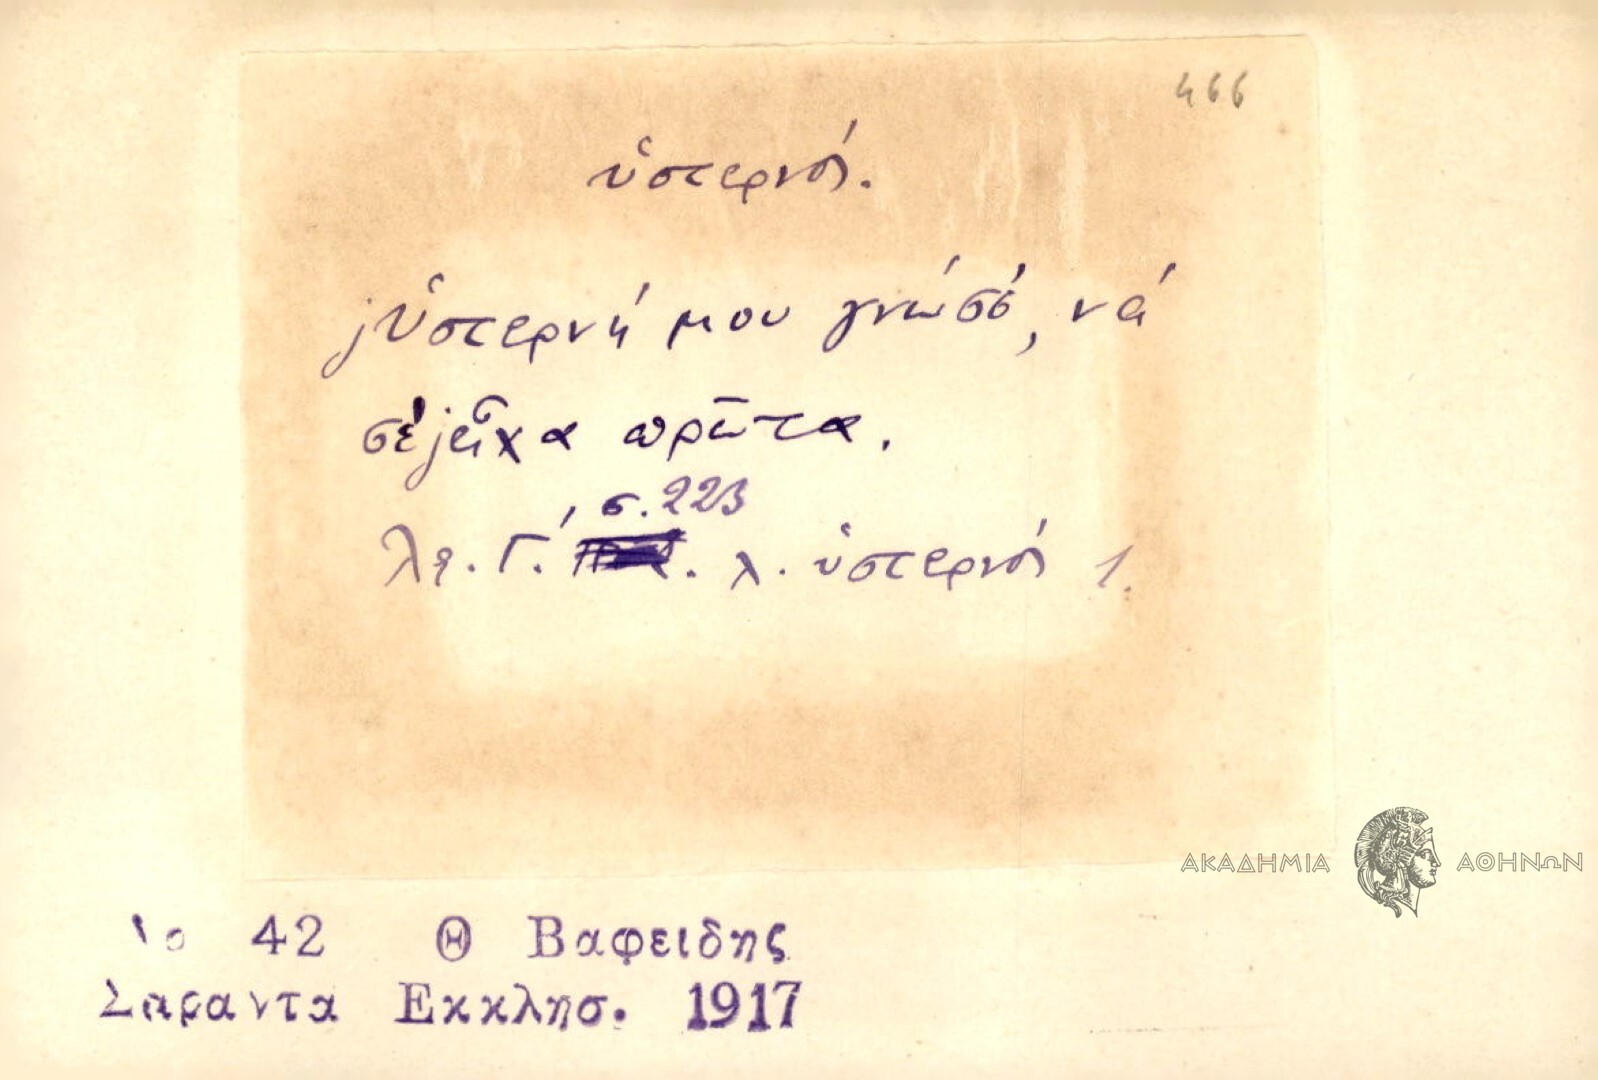 466
ὑστερνός.
jὙστερνή μου γνώσσ', νά
σέ jεἶχα πρῶτα.
σ. 223
λξ. Γ΄. λ. ὑστερνός 1.
ΑΚΑΔΗΜΙΑ ΑΘΗΝΩΝ
42 Θ Βαφειδης
Σαραντα Εκκλησ. 1917